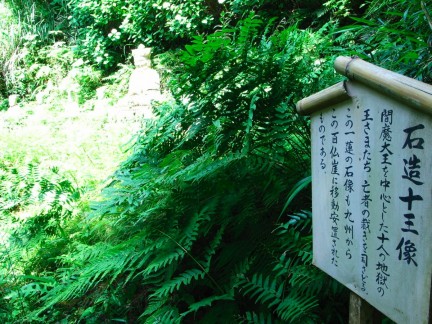 石造十三像
閻魔大王を中心とした十人の地獄の
王さまたち、亡者の裁きを司どる。
この一蓮の石像も九州から
この百仏崖に移動安置された
ものである。